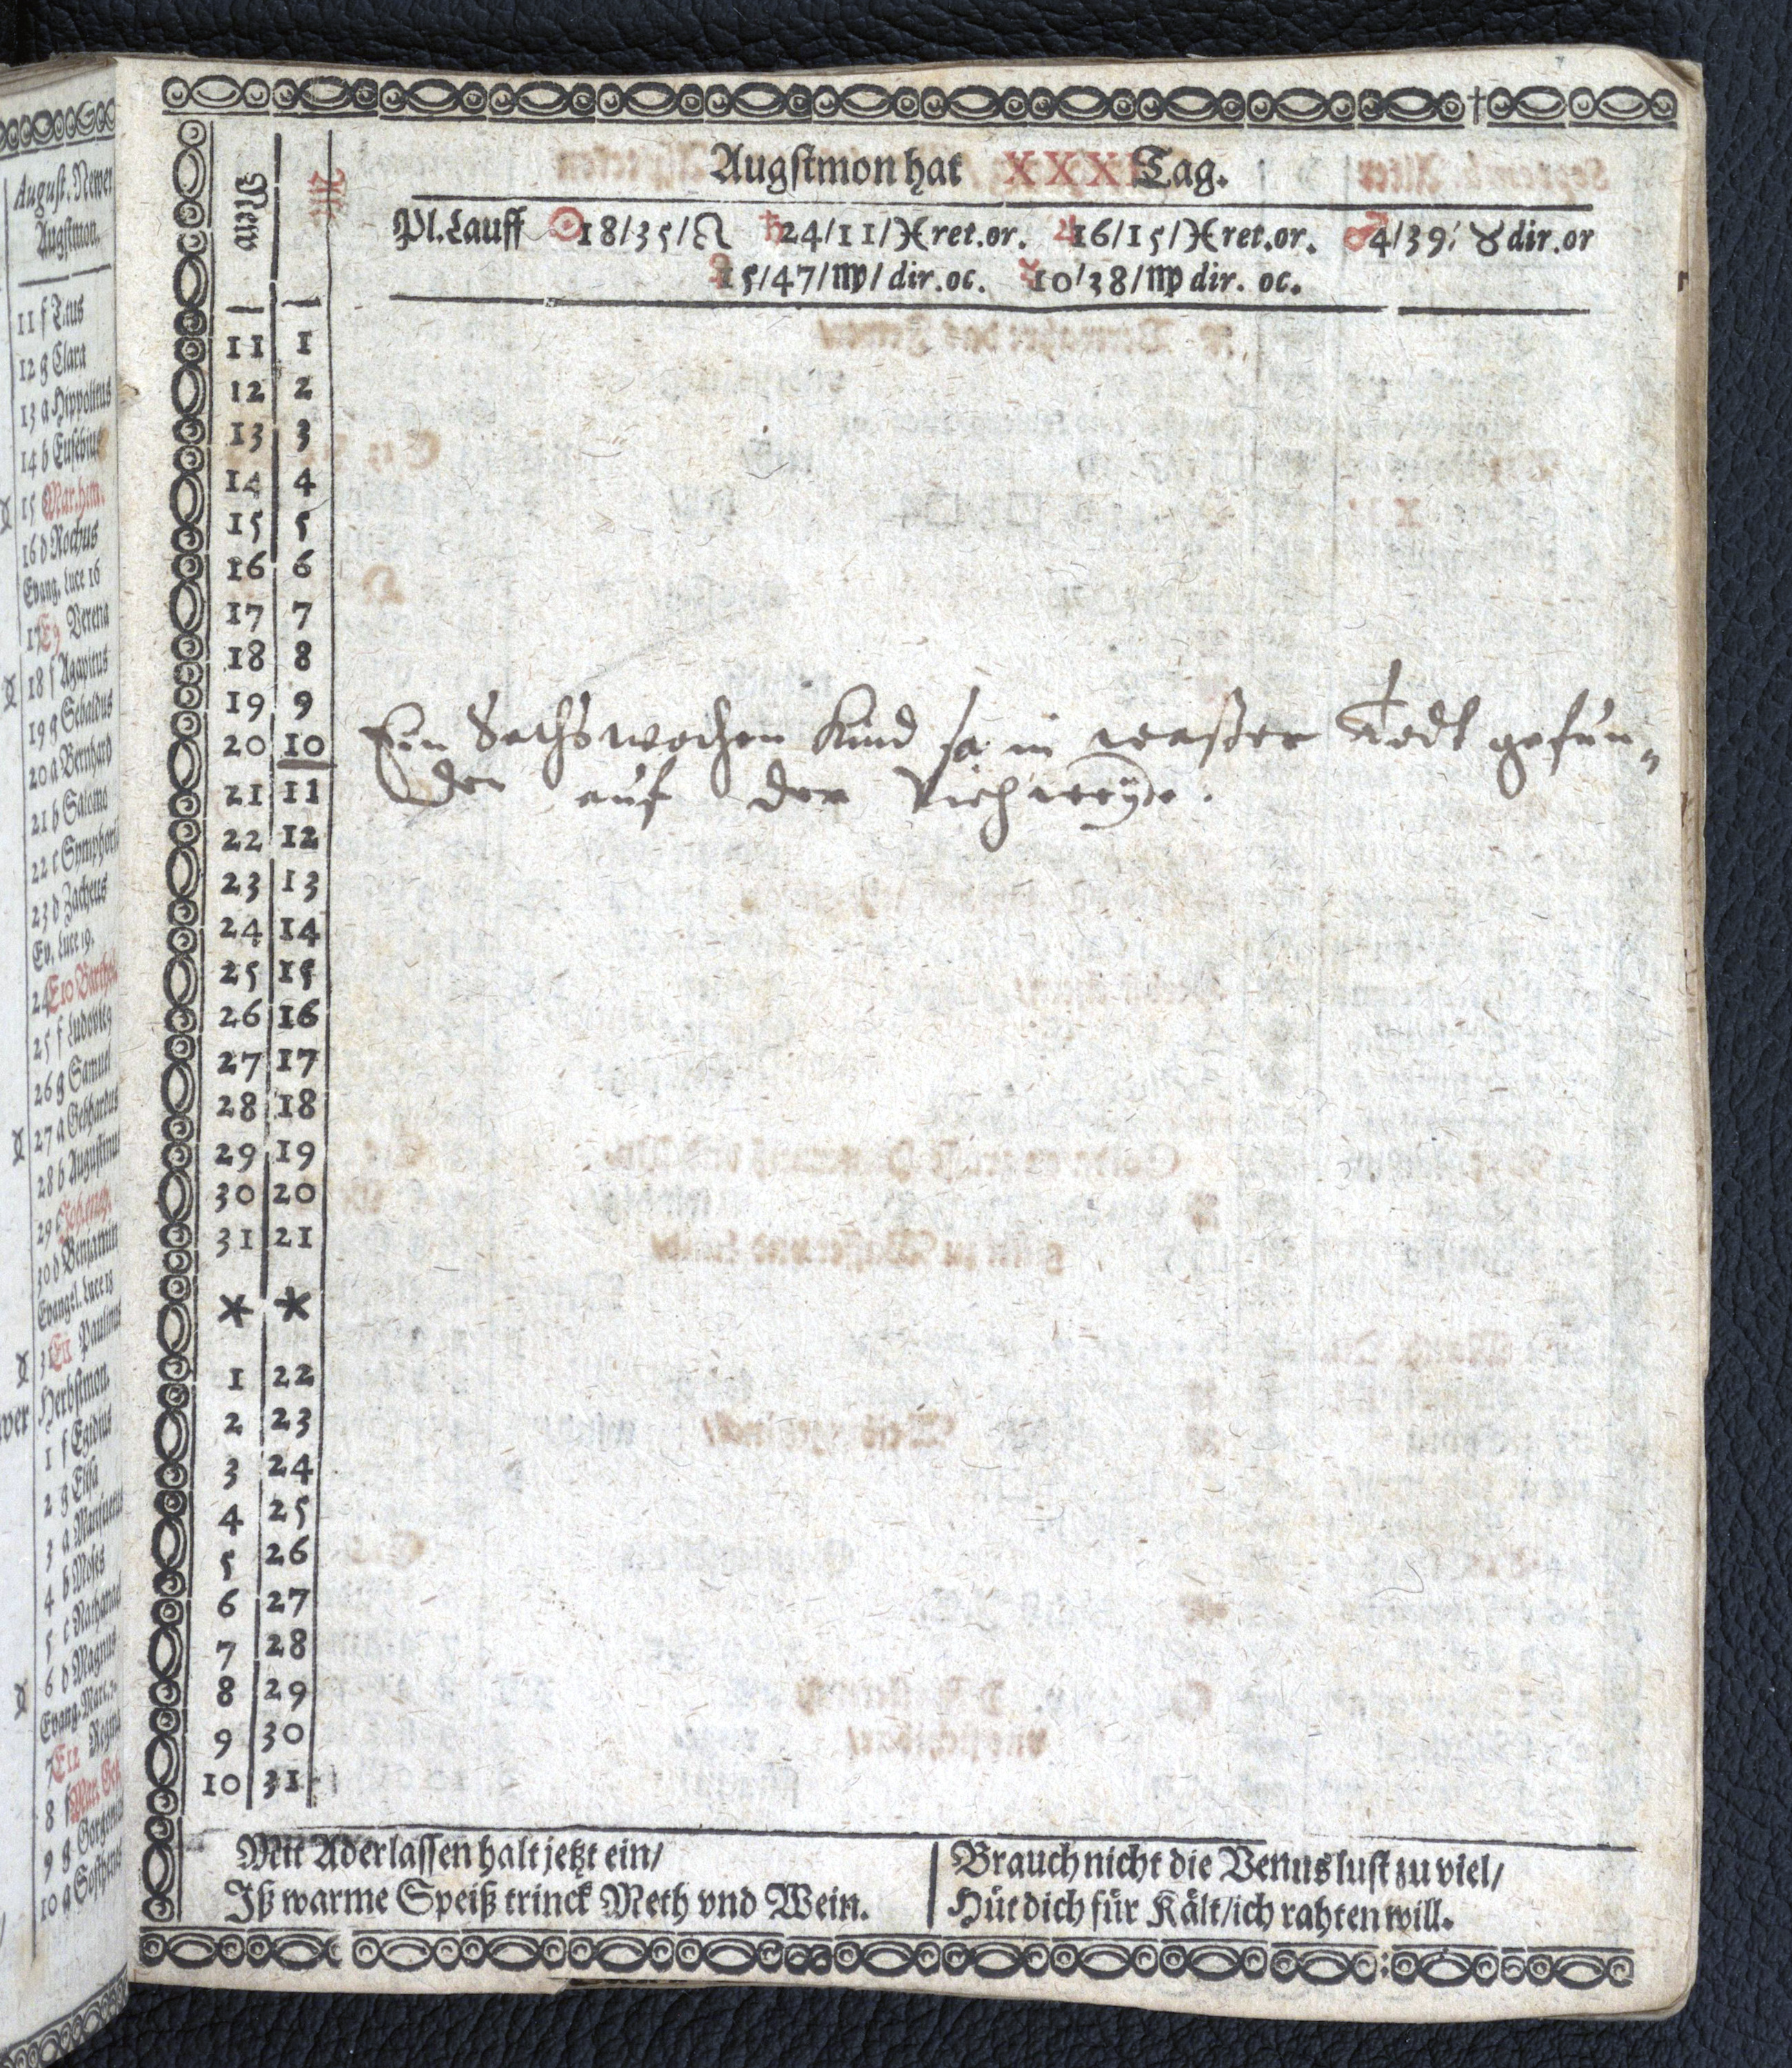 August. Newer
Augstmon.
11 f Titus
12 g Clara
13 a Hippolitus
14 b Eusebius
15 Mar. him.
16 d Rochus
Evang. Luce 16
17 E9 Verena
18 f Agapitus
19 g Sebaldus
20 a Bernhard
21 b Salome
22 c Symphori
23 d Zacheus
Ev. Luce 19.
24 E10 Barthol
25 f Ludovicg
26 g Samuel
27 a Gebhardus
28 b Augustinus
29 c
30 d Benjamin
Evangel. Luce 18
31 E11 Paulinus
Herbstmon.
1 f Egidius
2 g Elisa
3 a Mansuetus
4 b Moses
5 c Nathanael
6 d Magnus
Evang. Marc. 7.
7 E12 Regina
8 f Mar. Geb.
9 g Gorgonius
10 g Sosthenes
Augstmon hat XXXI Tag.
New
Pl. Lauff ☉ 18/35/♌ ♄ 24/11/♓ ret. or. ♃ 16/15/♓ ret. or. ♂ 4/39/ ♉ dir. or
♀ 15/47/♍/ dir. oc. ☿ 10/38/♍ dir. oc.
11 1
12 2
13 3
14 4
15 5
16 6
17 7
18 8
19 9
20 10 Ein Sechswochen Kind so in waßer Todt gefun„
21 11 den auf der Viehweyde.
22 12
23 13
24 14
25 15
26 16
27 17
28 18
29 19
30 20
31 21
* *
1 22
2 23
3 24
4 25
5 26
6 27
7 28
8 29
9 30
10 31
Mit Aderlassen halt jetzt ein/
Iß warme Speiß trinck Meth vnd Wein.
Brauch nicht die Venus lust zu viel/
Hüt dich für Kält/ich rahten will.